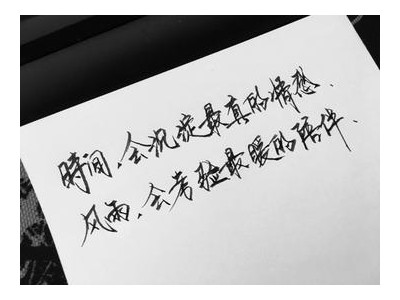 時间、会沉淀最真的情感、
风雨、会考验最暖的陪伴、